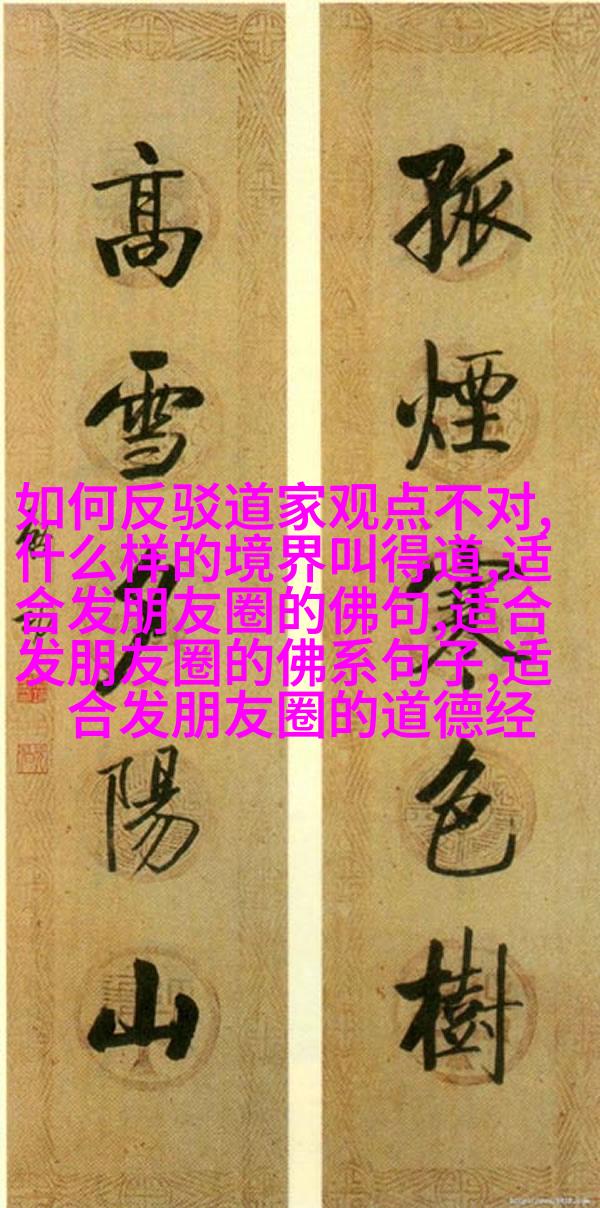 孤煙寒色樹
高雪夕陽山
如何反驳道家观点不对,
什么样的境界叫得道,适
合发朋友圈的佛句,适合
发朋友圈的佛系句子,适
合发朋友圈的道德经